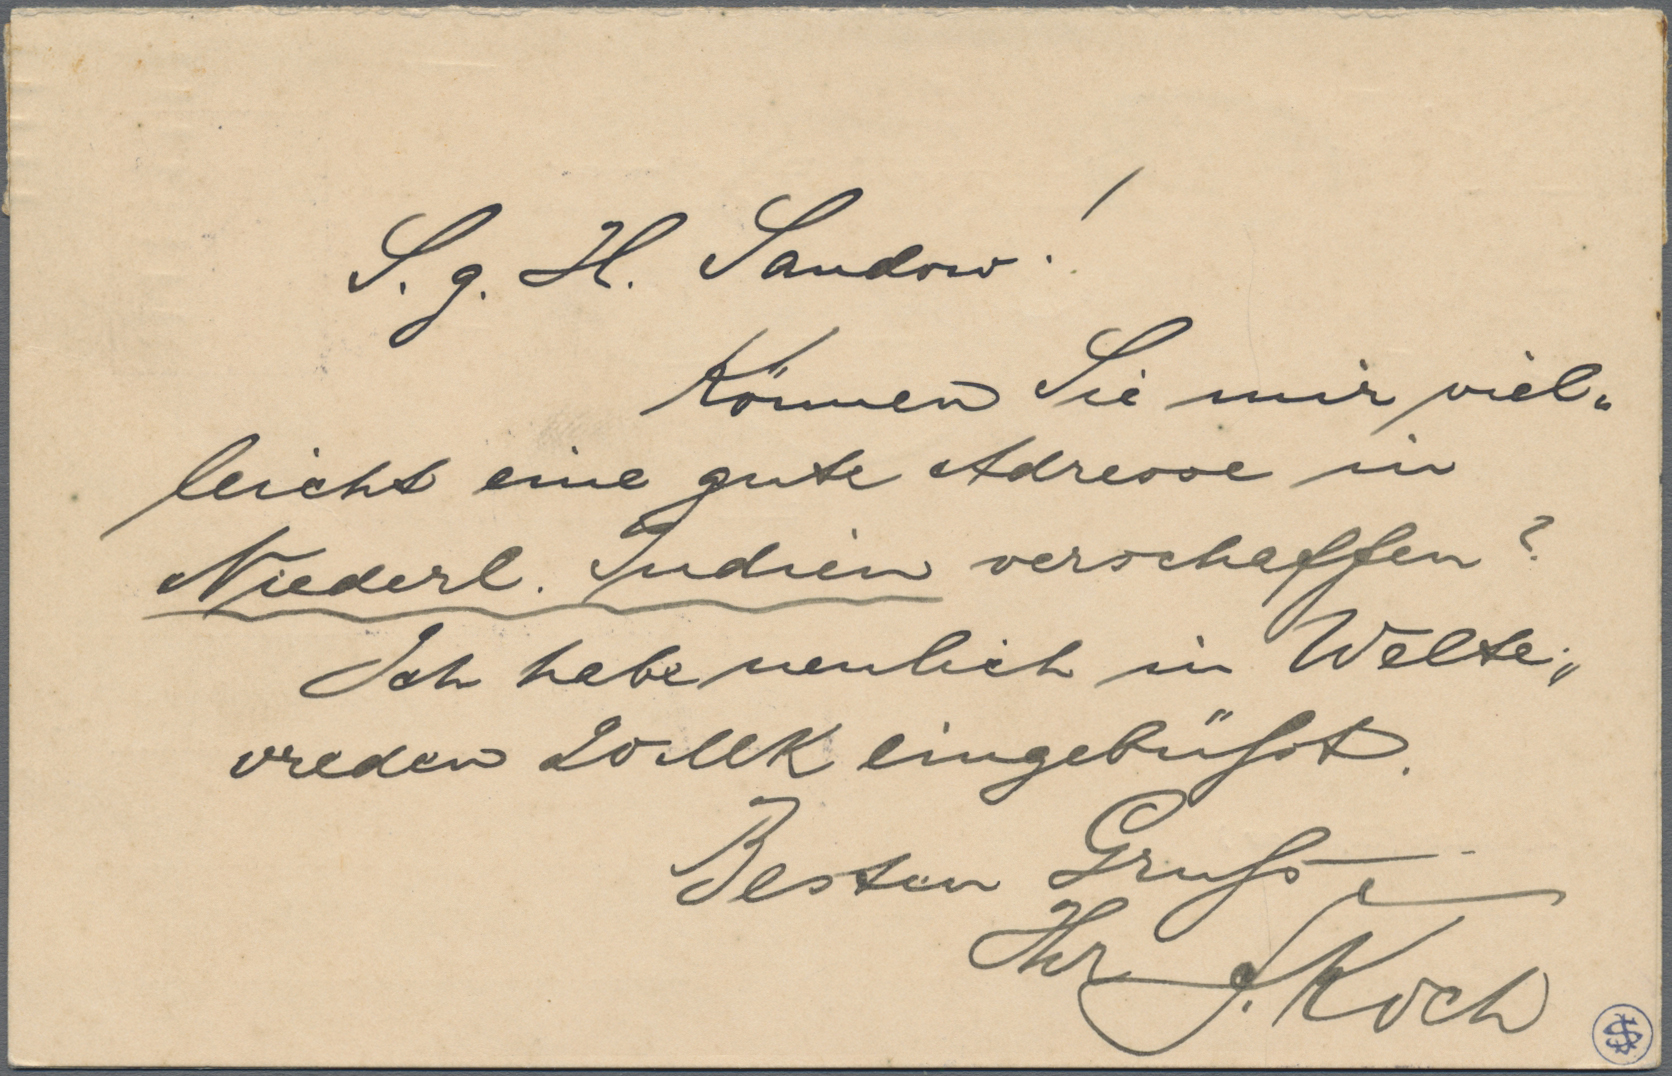 S. g. H. Sandow!
Können Sie mir viel„
leicht eine gute Adresse in
Niederl. Indien verschaffen?
Ich habe neulich in Welte„
vreden 20 MK eingebüßt.
Besten Gruß
Ihr J. Koch